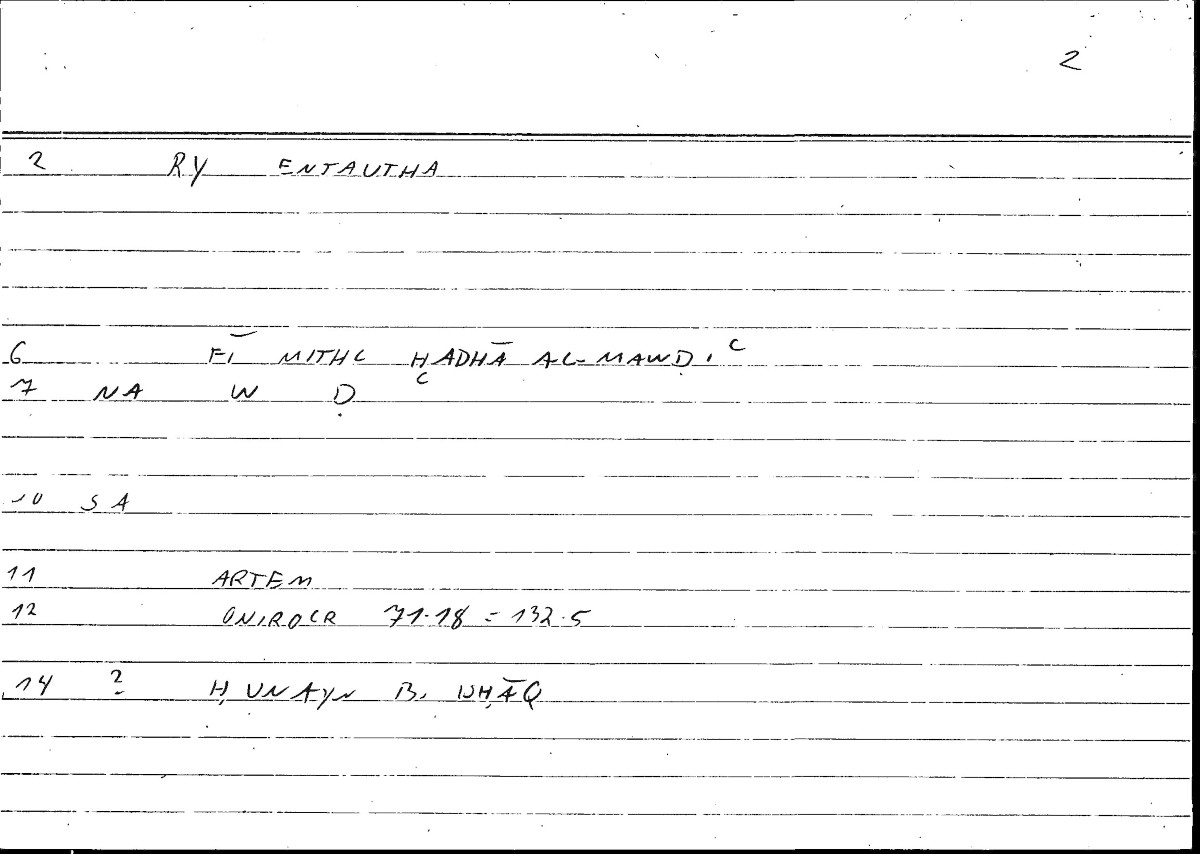 2
2 RY ENTAUTHA
6 FĪ MITHL HADHĀ AL-MAWḌIᶜ
7 NA W Ḍ ᶜ
10 SA
11 ARTEM
12 ONIROCR 71.18 = 132.5
14 ? ḤUNAYN B. ISḤĀQ